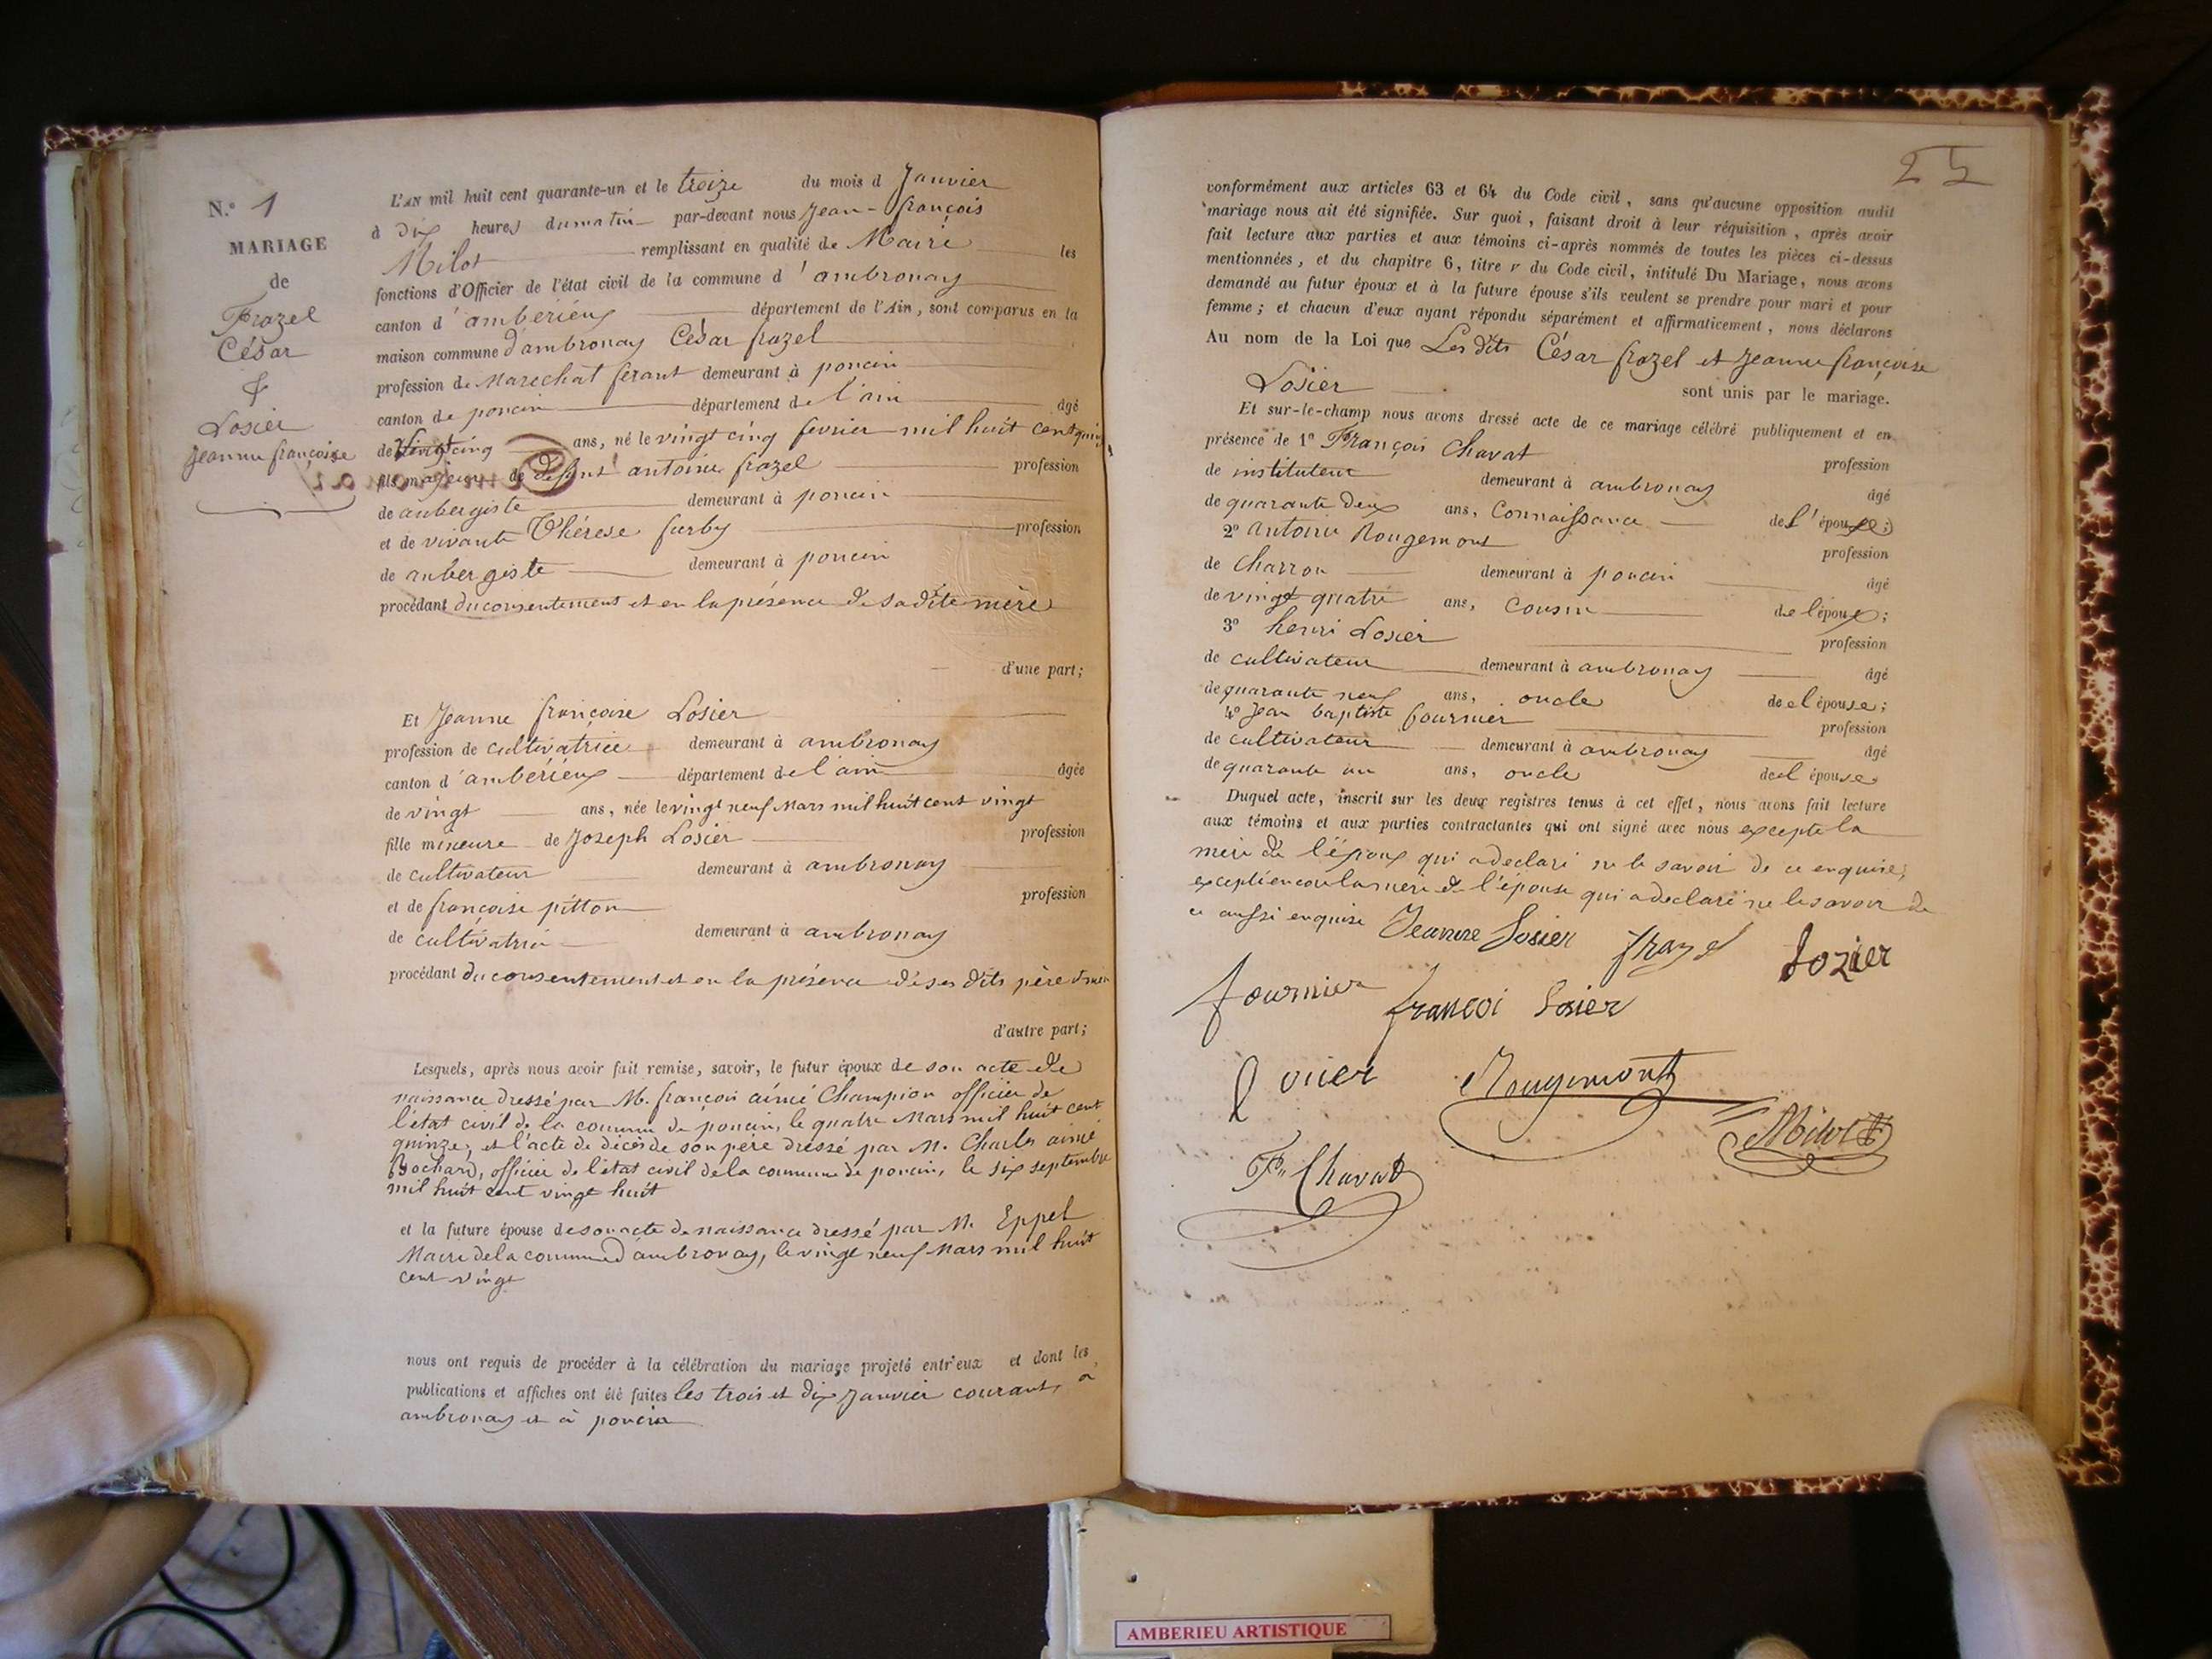 N.º 1
MARIAGE
de
Frazel
César
&
Losier
Jeanne françoise
L'AN mil huit cent quarante-un et le treize du mois d Janvier
à dix heures du matin par-devant nous Jean-françois
Milot remplissant en qualité de Maire les
fonctions d'Officier de l'état civil de la commune d'ambronay
canton d'ambérieux département de l'Ain, sont comparus en la
maison commune d'ambronay César frazel
profession de Marechal ferant demeurant à poncin
canton de poncin département de l'ain âgé
de vingt cinq ans, né le vingt cinq fevrier mil huit cent quin
fils majeur de défunt antoine frazel profession
de aubergiste demeurant à poncin
et de vivante Thérese furby profession
de aubergiste demeurant à poncin
procédant du consentement et en la présence de sa dite mère
d'une part;
Et Jeanne françoise Losier
profession de cultivatrice demeurant à ambronay
canton d'ambérieux département de l'ain âgée
de vingt ans, née le vingt neuf Mars mil huit cent vingt
fille mineure de Joseph Losier profession
de cultivateur demeurant à ambronay
et de françoise pitton profession
de cultivatrice demeurant à ambronay
procédant du consentement et en la présence de ses dits père & mère
d'autre part;
Lesquels, après nous avoir fait remise, savoir, le futur époux de son acte de
naissance dressé par M. françois aimé Champion officier de
l'état civil de la commune de poncin, le quatre Mars mil huit cent
quinze; et l'acte de décès de son père dressé par M. Charles aimé
Bochard, officier de l'état civil de la commune de poncin, le six septembre
mil huit cent vingt huit
et la future épouse de son acte de naissance dressé par M. Eppel
Maire de la commune d'ambronay, le vingt neuf Mars mil huit
cent vingt
nous ont requis de procéder à la célébration du mariage projeté entr'eux et dont les
publications et affiches ont été faites les trois et dix Janvier courant, a
ambronay et à poncin
25
conformément aux articles 63 et 64 du Code civil, sans qu'aucune opposition audit
mariage nous ait été signifiée. Sur quoi, faisant droit à leur réquisition, après avoir
fait lecture aux parties et aux témoins ci-après nommés de toutes les pièces ci-dessus
mentionnées, et du chapitre 6, titre v du Code civil, intitulé Du Mariage, nous avons
demandé au futur époux et à la future épouse s'ils veulent se prendre pour mari et pour
femme; et chacun d'eux ayant répondu séparément et affirmativement, nous déclarons
Au nom de la Loi que Les dits César frazel et Jeanne françoise
Losier sont unis par le mariage.
Et sur-le-champ nous avons dressé acte de ce mariage célébré publiquement et en
présence de 1º François Chavat profession
de instituteur demeurant à ambronay âgé
de quarante deux ans, Connaissance de l'épouse;
2º antoine Rougemont profession
de Charron demeurant à poncin âgé
de vingt quatre ans, Cousin de l'époux;
3º henri Losier profession
de cultivateur demeurant à ambronay âgé
de quarante neuf ans, oncle de l'épouse;
4º Jean baptiste fournier profession
de cultivateur demeurant à ambronay âgé
de quarante un ans, oncle de l'épouse
Duquel acte, inscrit sur les deux registres tenus à cet effet, nous avons fait lecture
aux témoins et aux parties contractantes qui ont signé avec nous excepté la
mère de l'époux qui a declaré ne le savoir de ce enquise,
excepté encore la mère de l'épouse qui a declaré ne le savoir de
ce aussi enquise Jeanne Losier frazel Lozier
fournier françoi Losier
Rougemont
Milot
F. Chavat
AMBERIEU ARTISTIQUE